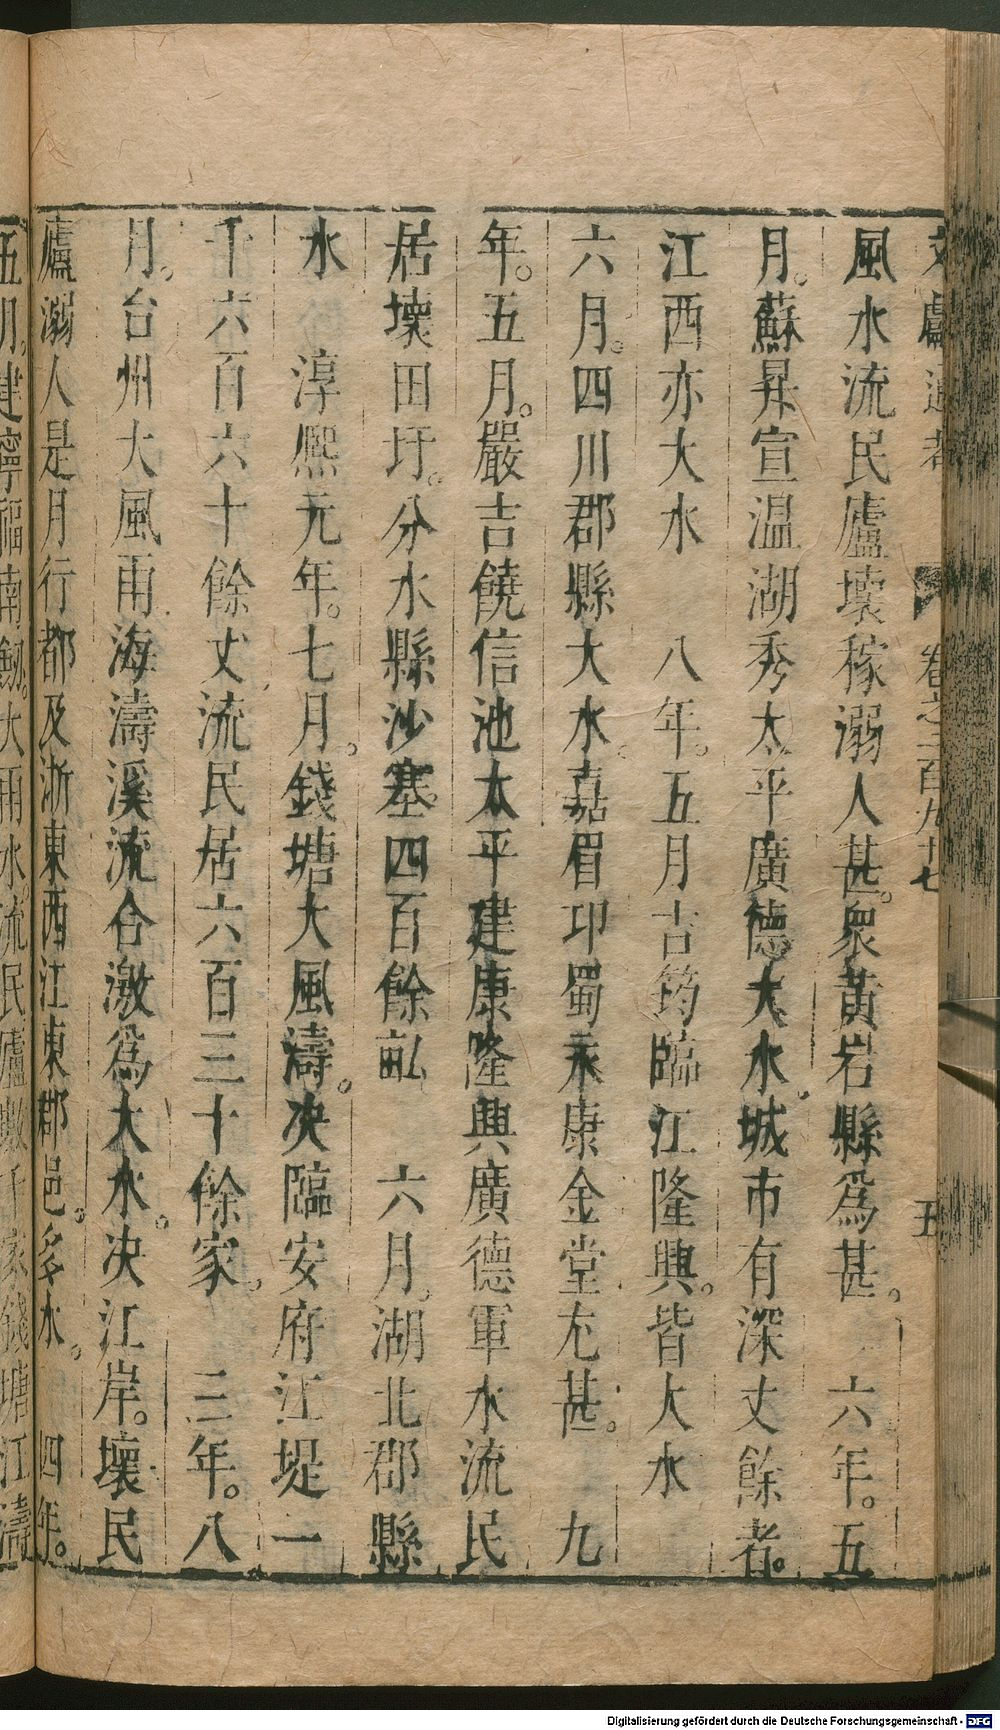 文獻通考 卷之二百九十七 五
風水流民廬壞稼溺人甚。衆黃岩縣爲甚。 六年。五
月。蘇昇宣温湖秀太平廣德大水。城市有深丈餘者。
江西亦大水 八年。五月吉筠臨江隆興。皆大水
六月。四川郡縣大水。嘉眉邛蜀永康金堂尤甚。 九
年。五月。嚴吉饒信池太平建康隆興廣德軍水流民
居壞田圩。分水縣沙塞四百餘畝 六月。湖北郡縣
水 淳熙元年。七月。錢塘大風濤。决臨安府江堤一
千六百六十餘丈流民居六百三十餘家。 三年。八
月。台州大風雨海濤溪流合激爲大水。决江岸。壞民
廬溺人是月行都及浙東西江東郡邑。多水。 四年。
五月。建寧福南劒。大雨水。流民廬數千家錢塘江濤
Digitalisierung gefördert durch die Deutsche Forschungsgemeinschaft - DFG